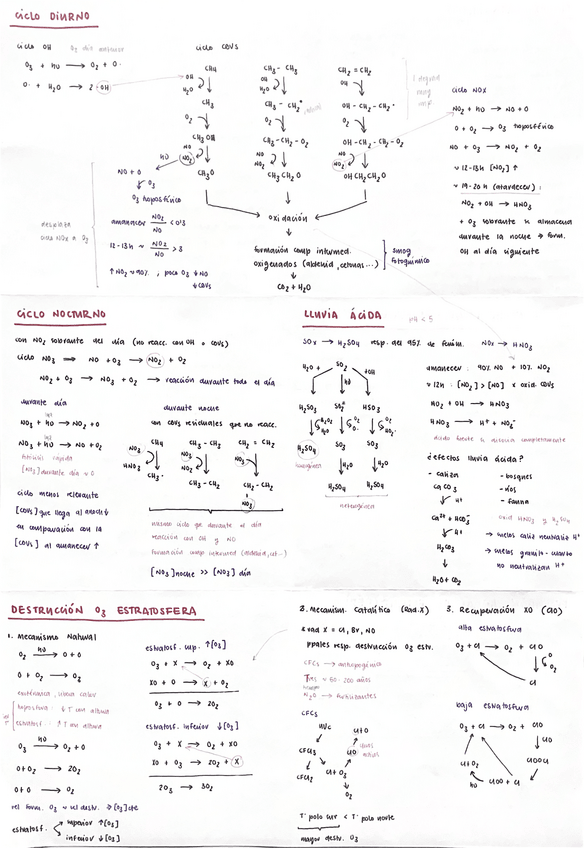 CICLO DIURNO
ciclo OH
O3 + hν → O2 + O·
O· + H2O → 2 ·OH
ciclo COVS
CH4
OH
H2O
CH3
O2
CH3OH
NO
NO2
CH3O
hν
NO + O
O3
O3 troposférico
amanecer NO2/NO < 0'3
12-13h ~ NO2/NO > 3
↑NO2 ~ 90%, poco O3 ↓NO
↓COVs
CH3 - CH3
OH
H2O
CH3 - CH2·
O2
CH3 - CH2 - O2
NO
NO2
CH3CH2O
CH2 = CH2
OH
OH - CH2 - CH2·
O2
OH - CH2 - CH2 - O2
NO
NO2
OH CH2CH2O
oxidación
formación comp intermed.
oxigenados (aldehid, cetonas...)
smog
fotoquímico
CO2 + H2O
ciclo NOx
NO2 + hν → NO + O
O + O2 → O3 troposférico
NO + O3 → NO2 + O2
~ 12-13h [NO2] ↑
~ 19-20h (atardecer):
NO2 + OH → HNO3
+ O3 sobrante se almacena
durante la noche → form.
OH al día siguiente
CICLO NOCTURNO
con NO2 sobrante del día (no reacc. con OH o COVs)
ciclo NO3 ⟹ NO + O3 → NO2 + O2
NO2 + O3 → NO3 + O2 → reacción durante todo el día
durante día
NO3 + hν → NO2 + O
NO3 + hν → NO + O2
fotólisis rápida
[NO3] durante día ~ 0
ciclo menos relevante
[COVs] que llega al anoch ↓
en comparación con la
[COVs] al amanecer ↑
durante noche
con COVs residuales que no reacc.
CH4
NO3
HNO3
CH3·
CH3 - CH3
NO3
NO2
CH3 - CH2
CH2 = CH2
CH2 - CH2
NO3
mismo ciclo que durante el día
reacción con OH y NO
formación comp intermed (aldehid, cet...)
[NO3] noche >> [NO3] día
LLUVIA ÁCIDA
pH < 5
SOx → H2SO4 resp. del 95% de fenóm.
SO2
H2O
+OH
hν
H2SO3
HSO3
H2SO4
SO3
SO3
H2O
H2O
H2SO4
H2SO4
NOx → HNO3
amanecer: 90% NO + 10% NO2
~ 12h: [NO2] > [NO] x oxid COVs
NO2 + OH → HNO3
HNO3 → H+ + NO3-
ácido fuerte se disocia completamente
¿efectos lluvia ácida?
- caliza
CaCO3
H+
Ca2+ + HCO3-
H+
H2CO3
H2O + CO2
- bosques
- ríos
- fauna
→ suelos caliz neutraliz H+
→ suelos granit-cuarzo
no neutralizan H+
DESTRUCCIÓN O3 ESTRATOSFERA
1. Mecanismo Natural
O2 hν→ O + O
O + O2 → O3
exotérmica, libera calor
troposfera: ↓T con altura
estratosf.: ↑T con altura
O3 hν→ O2 + O
O + O3 → 2O2
O + O → O2
vel form. O3 ~ vel destr. ⇒ [O3] cte
estratosf.
superior ↑[O3]
inferior ↓[O3]
estratosf. sup. ↑[O3]
O3 + X → O2 + XO
XO + O → X + O2
O3 + O → 2O2
estratosf. inferior ↓[O3]
O3 + X → O2 + XO
XO + O3 → 2O2 + X
2O3 → 3O2
2. Mecanism. Catalítico (Rad. X)
x rad X = Cl, Br, NO
ppales resp. destrucción O3 estr.
CFCs → antropogénico
Tres ~ 50-200 años
N2O → fertilizantes
CFCs
uvc
CFCl3
CFCl2
Cl + O3
ClO
O2
Tª polo sur < Tª polo norte
mayor destr. O3
3. Recuperación XO (ClO)
alta estratosfera
O3 + Cl → O2 + ClO
O
O2
Cl
baja estratosfera
O3 + Cl → O2 + ClO
ClO
ClOOCl
hν
ClOO + Cl
Cl + O2